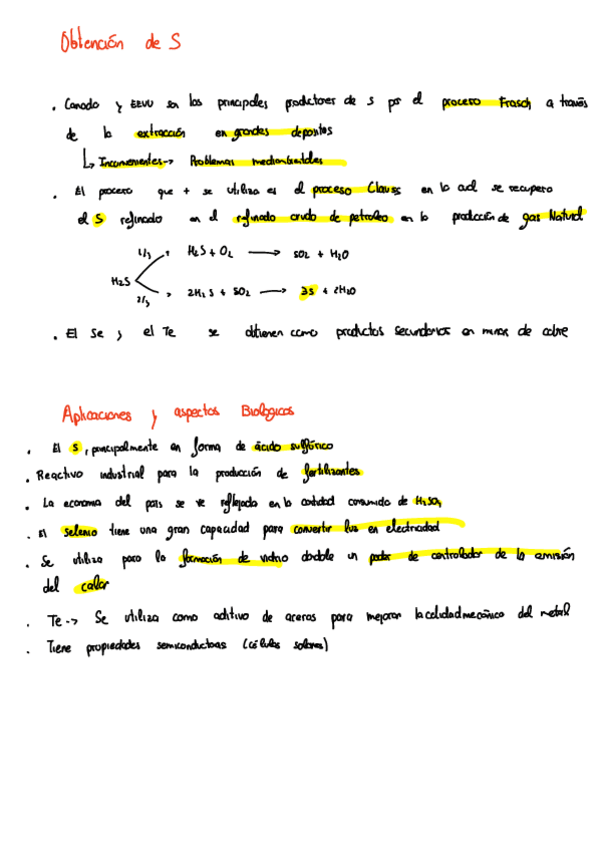 Obtención de S
. Canada y EEUU son los principales productores de S por el proceso Frasch a través
de la extracción en grandes depositos
↳ Inconvenientes -> Problemas medioambientales
. El proceso que + se utiliza es el proceso Clauss en la cual se recupera
el S refinado en el refinado crudo de petroleo en la producción de gas Natural
1/3 H2S + O2 → SO2 + H2O
H2S
2/3 2H2S + SO2 → 3S + 2H2O
. El Se y el Te se obtienen como productos secundarios en minas de cobre
Aplicaciones y aspectos Biologicos
. El S, principalmente en forma de ácido sulfúrico
. Reactivo industrial para la producción de fertilizantes
. La economia del pais se ve reflejada en la cantidad consumida de H2SO4
. El selenio tiene una gran capacidad para convertir luz en electricidad
. Se utiliza para la formación de vidrio dandole un poder de controlador de la emisión
del calor
. Te -> Se utiliza como aditivo de aceros para mejorar la calidad mecánica del metal
. Tiene propiedades semiconductoras (células solares)